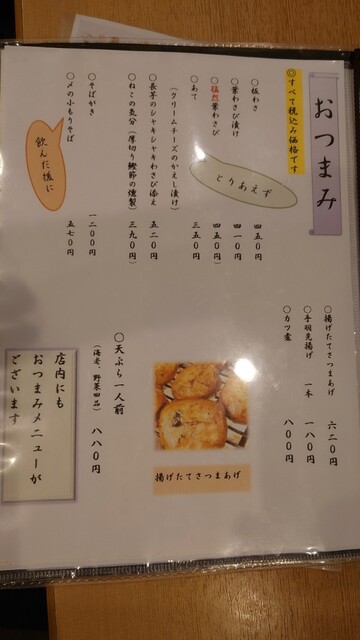 おつまみ
◎すべて税込み価格です
〇板わさ 四五〇円
〇葉わさび漬け 四一〇円
〇猛烈葉わさび 四五〇円
〇あて 三五〇円
(クリームチーズのかえし漬け)
〇長芋のシャキシャキわさび添え 五二〇円
〇ねこの気分(厚切り鰹節の燻製) 三九〇円
〇そばがき 一二〇〇円
〇〆の小もりそば 五七〇円
とりあえず
飲んだ後に
〇揚げたてさつまあげ 六二〇円
〇手羽先揚げ 一本 一八〇円
〇カツ煮 八〇〇円
揚げたてさつまあげ
〇天ぷら一人前
(海老、野菜四品) 八八〇円
店内にも
おつまみメニューが
ございます